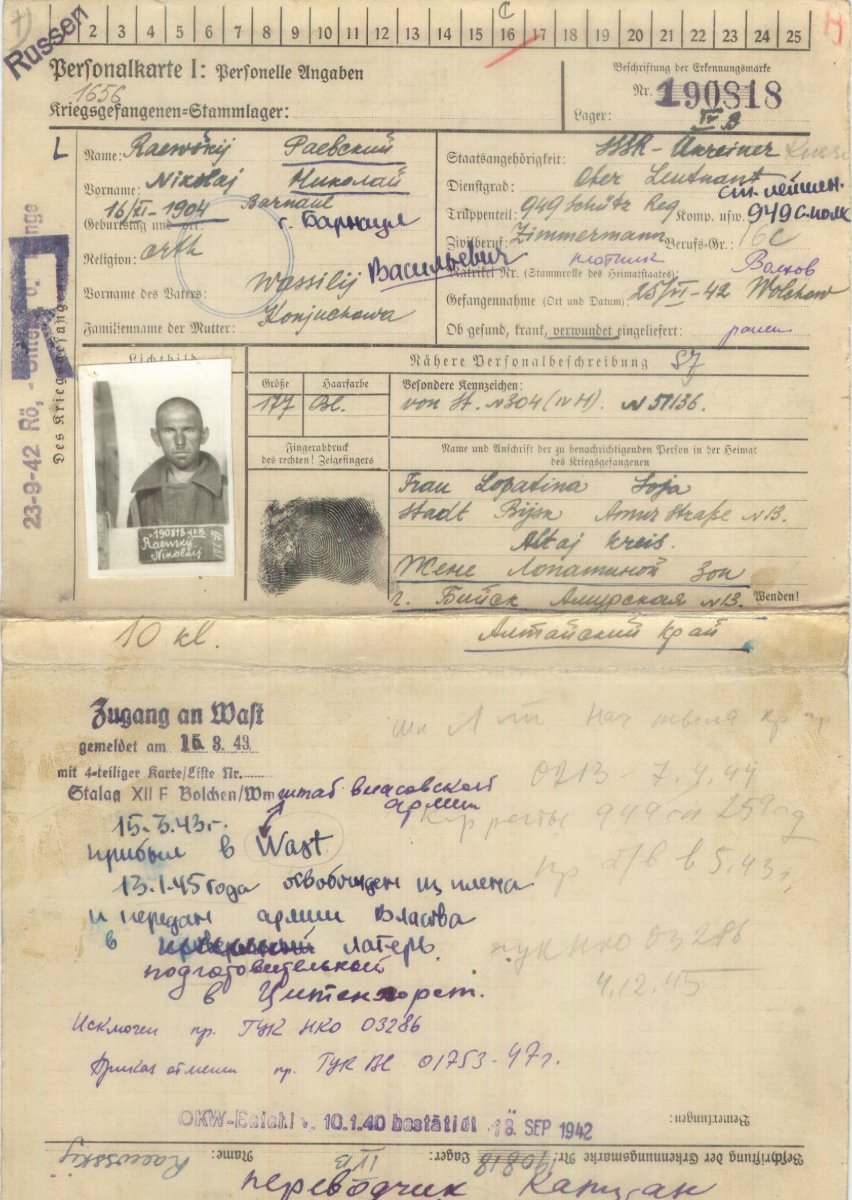 Russen
2 3 4 5 6 7 8 9 10 11 12 13 14 15 16 17 18 19 20 21 22 23 24 25
C
Personalkarte I: Personelle Angaben
1656
Kriegsgefangenen=Stammlager:
Beschriftung der Erkennungsmarke
Nr. 190818
Lager: IV B
L
Name: Raewskij Раевский
Vorname: Nikolaj Николай
16/VI-1904 Barnaul
Geburtstag und
г. Барнаул
Religion: orth
Васильевич
Vorname des Vaters: Wassilij
Familienname der Mutter: Konjuchowa
Staatsangehörigkeit: SSSR - Ukreiner
Dienstgrad: Ober Leutnant ст. лейтен.
Truppenteil: 949 Schütz Reg Komp. usw. 949 с.полк
Zivilberuf: Zimmermann Berufs-Gr.: 16c
плотник
Matrikel Nr. (Stammrolle des Heimatstaates): Волхов
Gefangennahme (Ort und Datum): 25/VI-42 Wolchow
Ob gesund, krank, verwundet eingeliefert: ранен
R
23-9-42 Rö,
Des Kriegsgefangenen
Lichtbild
190818 IV B
Raewskij
Nikolaij
Nähere Personalbeschreibung
Größe Haarfarbe Besondere Kennzeichen:
177 Bl. von St. N304 (IV H). N 51136.
Fingerabdruck
des rechten! Zeigefingers
Name und Anschrift der zu benachrichtigenden Person in der Heimat
des Kriegsgefangenen
Frau Lopatina Soja
Stadt Bijsk Amur Straße N 13.
Altaj Kreis.
Жене Лопатиной Зои
г. Бийск Амурская N 13. Wenden!
10 kl. Алтайский край
Zugang an Wast
gemeldet am 15. 3. 43
mit 4=teiliger Karte/Liste Nr.
Stalag XII F Bolchen/Wm
штаб власовской
армии
15.3.43г.
прибыл в Wast
13.1.45 года освобожден из плена
и передан армии Власова
в лагерь
подготовительный
в Цитенхорст.
0213 - 7.4.44
949 сп 259
в 5.43г.
ГУК НКО 03286
4.12.45
Исключен пр. ГУК НКО 03286
Приказ отменен пр. ГУК ВС 01753-47г.
OKW-Befehl v. 10.1.40 bestätigt 18. SEP 1942
Bemerkungen:
Beschriftung der Erkennungsmarke Nr. 190818 Lager: IV B Name: Raewskij
переводчик Капитан